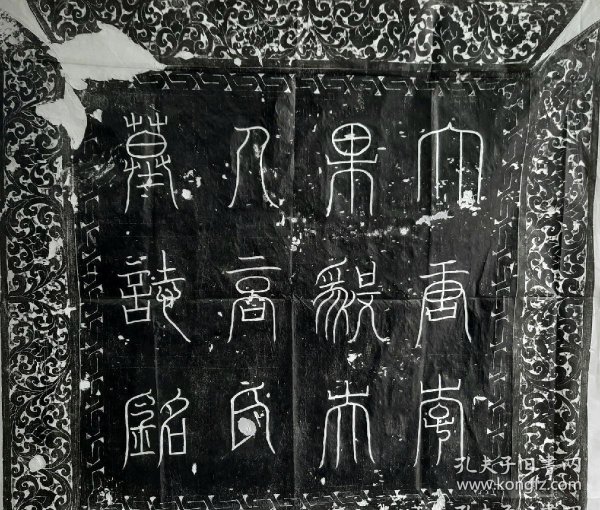 大唐李
果毅夫
人高氏
墓誌銘
孔夫子旧书网
www.kongfz.com